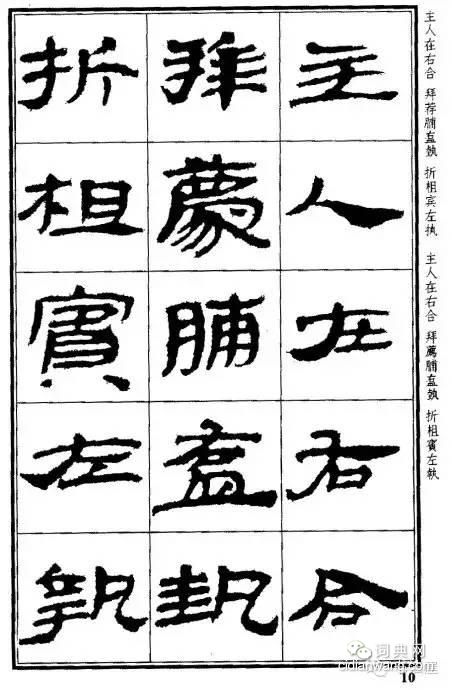 主人在右合 拜荐脯盍埶 折柤宾左执 主人在右合 拜薦脯盍埶 折柤賓左執
主人在右合
拜薦脯盍埶
折柤賓左執
词典网
cidianwang.com
10